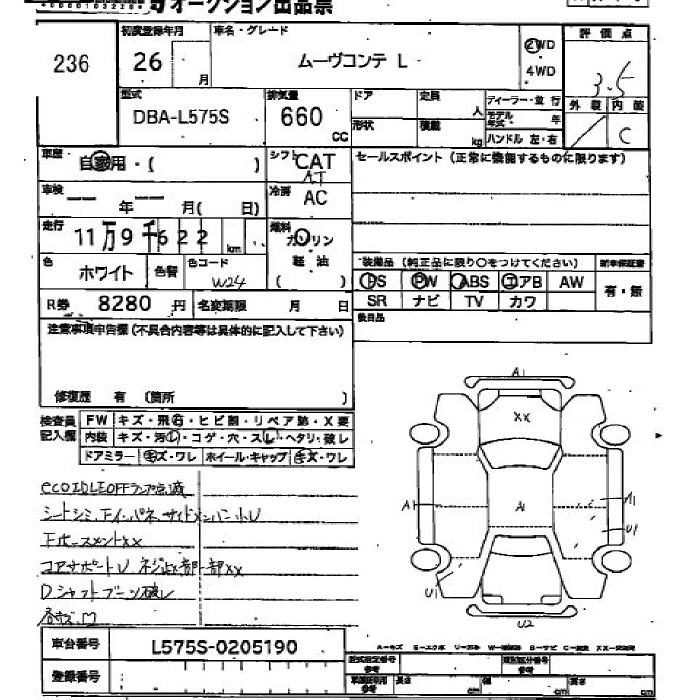 オークション出品票
236
初度登録年月
26 月
車名・グレード
ムーヴコンテ L
2WD
4WD
評価点
3.5
型式
DBA-L575S
排気量
660 CC
ドア
定員 人
形状
積載 kg
ディーラー・並行
モデル年式 年
ハンドル 左・右
外装 内装
C
車歴・ 自家用・( )
シフト CAT
AT
セールスポイント (正常に機能するものに限ります)
車検 年 月( 日)
冷房 AC
走行 11万9千622 km
燃料 ガソリン
軽油
( )
色 ホワイト 色替 色コード W24
装備品 (純正品に限り○をつけてください)
新車保証書
有・無
PS PW ABS エアB AW
SR ナビ TV カワ
R券 8280 円 名変期限 月 日
注意事項申告欄(不具合内容等は具体的に記入して下さい)
修復歴 有 (箇所 )
検査員記入欄
FW キズ・飛石・ヒビ割・リペア跡・X要
内装 キズ・汚レ・コゲ・穴・スレ・ヘタリ・破レ
ドアミラー キズ・ワレ ホイール・キャップ キズ・ワレ
ecoIDLEOFFランプ点滅
シートシミ
コアサポートU ネジ止メ部一部XX
Dシャフトブーツ破レ
A1
XX
A1
A1
A1
U1
U1
U2
車台番号 L575S-0205190
登録番号
型式指定番号
類別区分番号
長さ cm 幅 cm 高さ cm